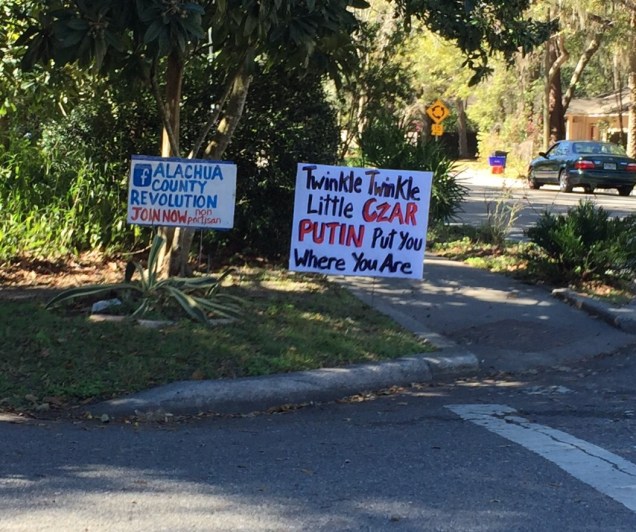 f ALACHUA
COUNTY
REVOLUTION
JOIN NOW non
partisan
Twinkle Twinkle
Little CZAR
PUTIN Put You
Where You Are